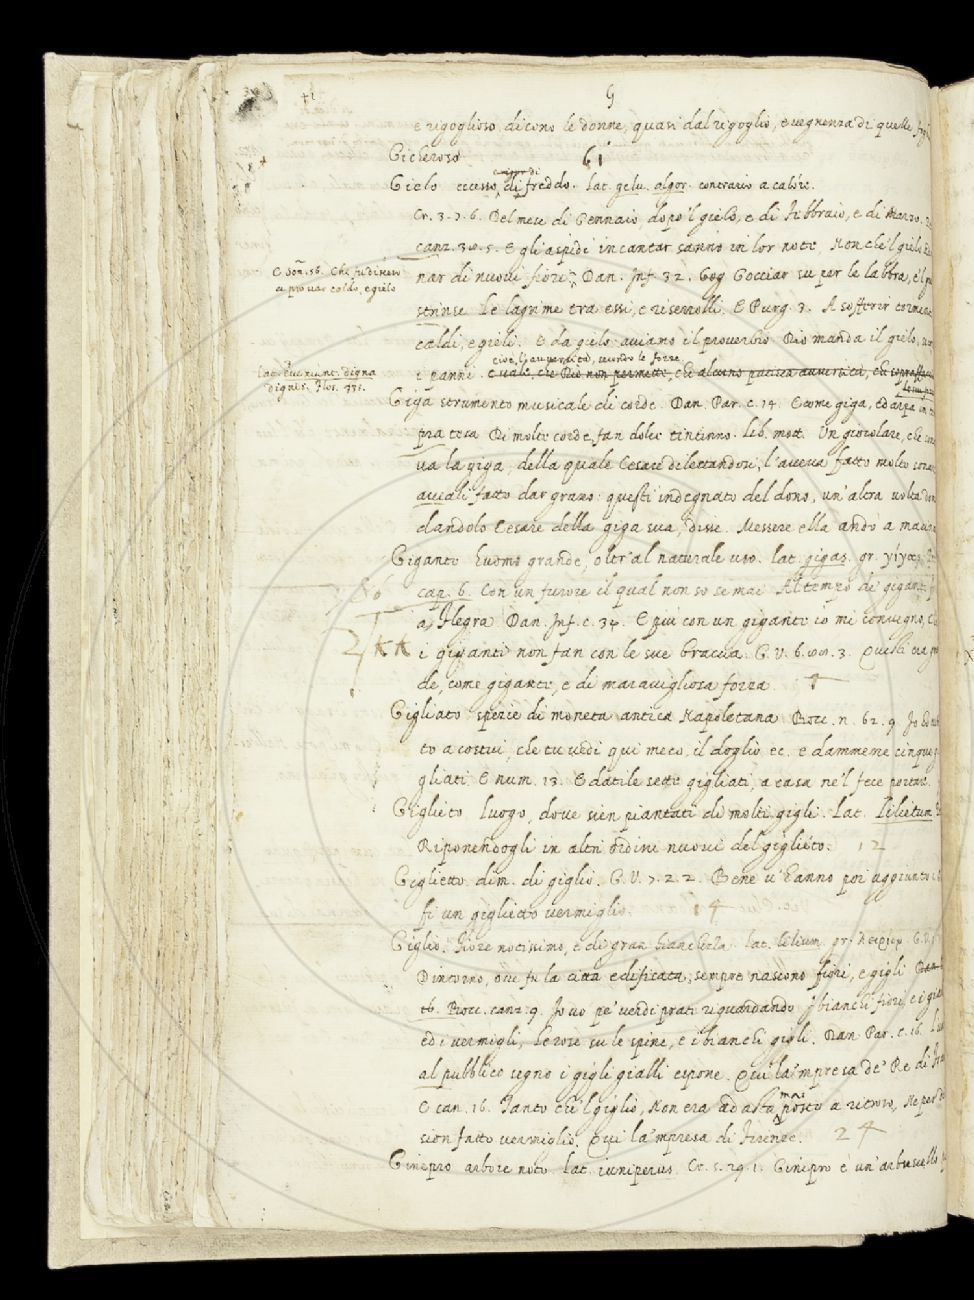 G
e rigoglioso dicono le donne, quasi dal rigoglio, e vegnenza di quelle
Gicheroso 61
Gielo eccesso di freddo. Lat. gelu. algor. contrario a calore.
Cr. 3. 7. 6. Del mese di Gennaio, dopo 'l gielo, e di Febbraio, e di Marzo.
canz. 30. 5. E gli aspidi incantar sanno in lor note Non che 'l gielo
nar di nuovi fiori; Dan. Inf. 32. Gocciar su per le labbra, e 'l
strinse Le lagrime tra essi, e riserrolli. E Purg. 3. A sofferir
caldi, e gieli. E da gielo aviamo il proverbio Dio manda il gielo,
cioè, secondo le forze
i panni. e vale, che Dio non permette, che alcuno patisca avversità, che
E son. 56. Che fu di nevo
a provar caldo, e gielo
eveniunt digna
dignis.
Giga strumento musicale di corde. Dan. Par. c. 14. E come giga, ed arpa in
pra tesa Di molte corde, fan dolce tintinno. Lib. mott. Un giocolare, che
va la giga, della quale Cesare dilettandosi, l'aveva fatto molto
aveali fatto dar grano: questi indegnato del dono, un'altra volta
dandolo Cesare della giga sua, disse. Messere ella andò a
Gigante huomo grande, oltr' al naturale uso. lat. gigas. gr. γίγας
cap. 6. Con un furore il qual non so se mai Al tempo de' giganti
a Flegra Dan. Inf. c. 34. E più con un gigante io mi convegno,
i giganti non fan con le sue braccia. G. V. 6. 3. Questi era
de, come gigante, e di maravigliosa forza
Gigliato spezie di moneta antica Napoletana Bocc. n. 62. 9. Io
to a costui, che tu vedi qui meco, il doglio ec. e dammene cinque
gliati. E num. 13. E datile sette gigliati, a casa ne 'l fece portare.
Giglieto luogo, dove sien piantati di molti gigli. Lat. lilietum
Riponendogli in altri ordini nuovi del giglieto. 12
Giglietto dim. di giglio. G. V. 7. 2. 2. Bene v' hanno poi aggiunto
si un giglietto vermiglio. 14
Giglio. Fiore notissimo, e di gran bianchezza lat. lilium. gr.
Dintorno, ove fu la città edificata, sempre nascono fiori, e gigli
Bocc. canz. 9. Io vo pe' verdi prati riguardando I bianchi fiori, e i
ed i vermigli, Le rose su le spine, e i bianchi gigli. Dan. Par. c. 16.
al pubblico segno i gigli gialli espone. Qui la 'mpresa de' Re di
mai
E can. 16. Tanto che 'l giglio, Non era ad asta posto a ritroso, Ne per
sion fatto vermiglio. Qui la 'mpresa di Firenze. 24
Ginepro arbore noto lat. iuniperus. Cr. 5. 29. 1. Ginepro è un' arbuscello